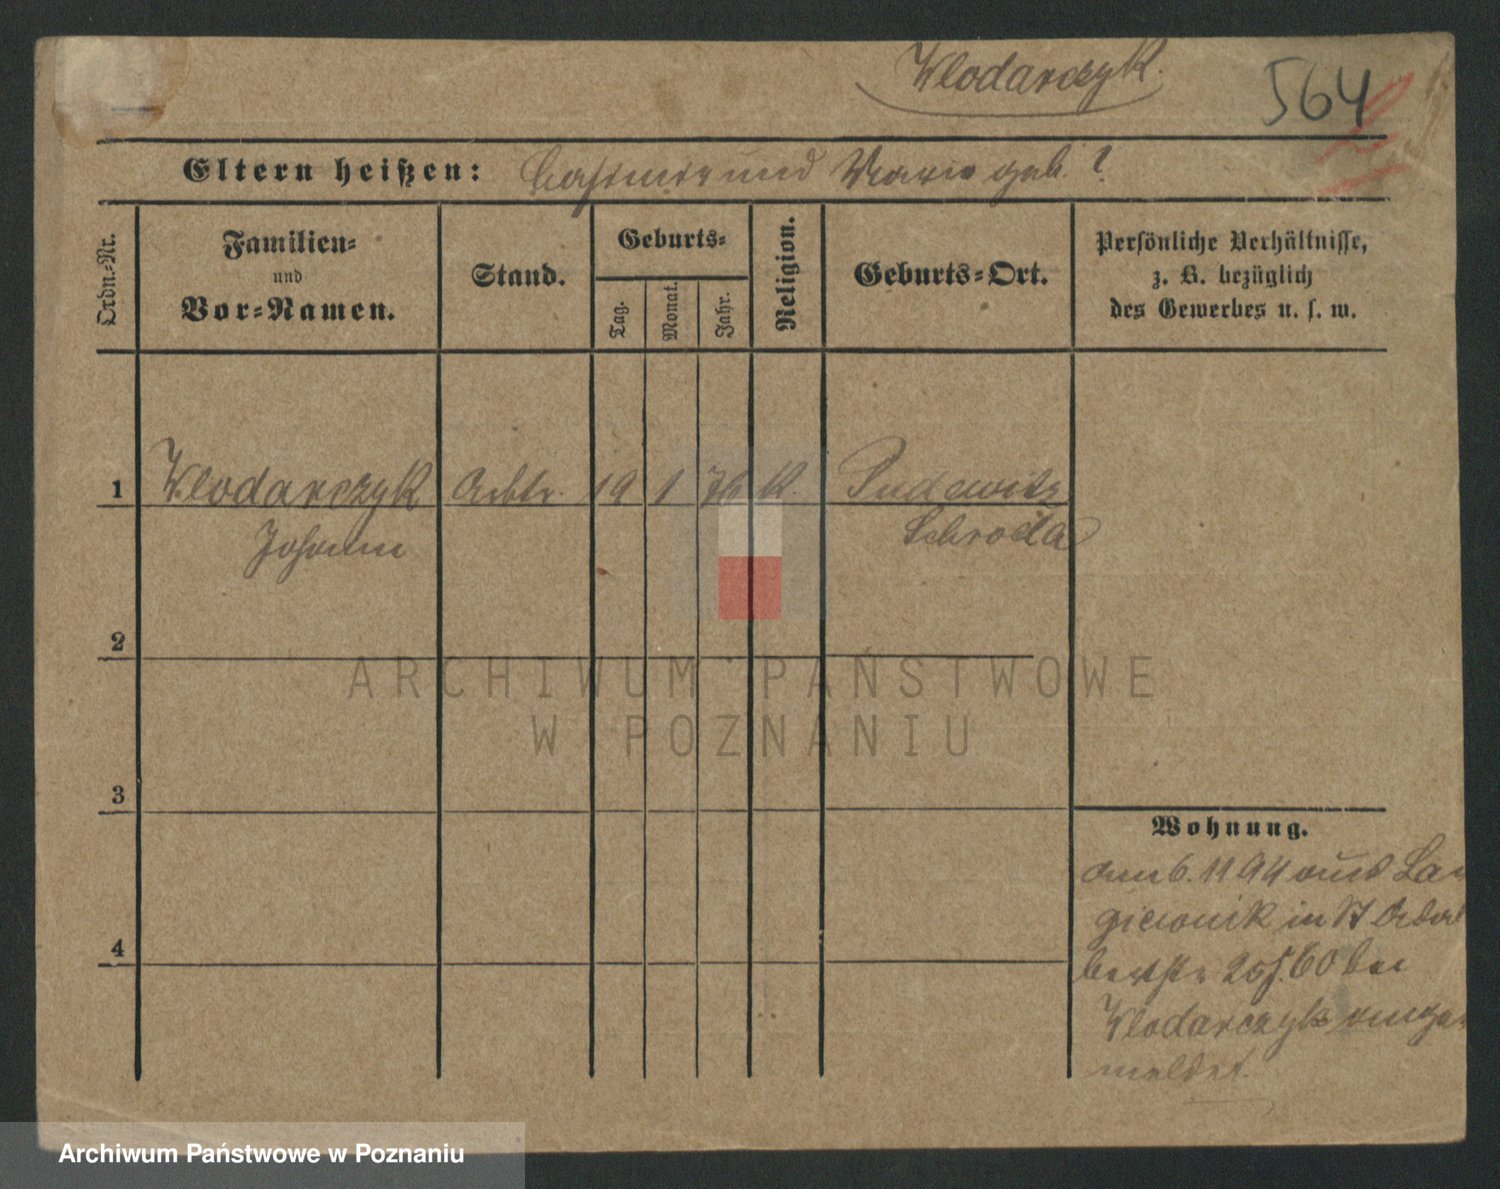 Wlodarczyk.
564
Eltern heißen: Casimir und Marie geb. ?
Ordn.-Nr.
Familien-
und
Vor-Namen.
Stand.
Geburts-
Tag.
Monat.
Jahr.
Religion.
Geburts-Ort.
Persönliche Verhältnisse,
z. B. bezüglich
des Gewerbes u. s. w.
1 Wlodarczyk Arbtr. 19 1 76 K. Pudewitz
Johann Schroda
2
ARCHIWUM PAŃSTWOWE
W POZNANIU
3
Wohnung.
den 6. 11 94 aus
in St
60 bei
4
Wlodarczyk ange
meldet.
Archiwum Państwowe w Poznaniu